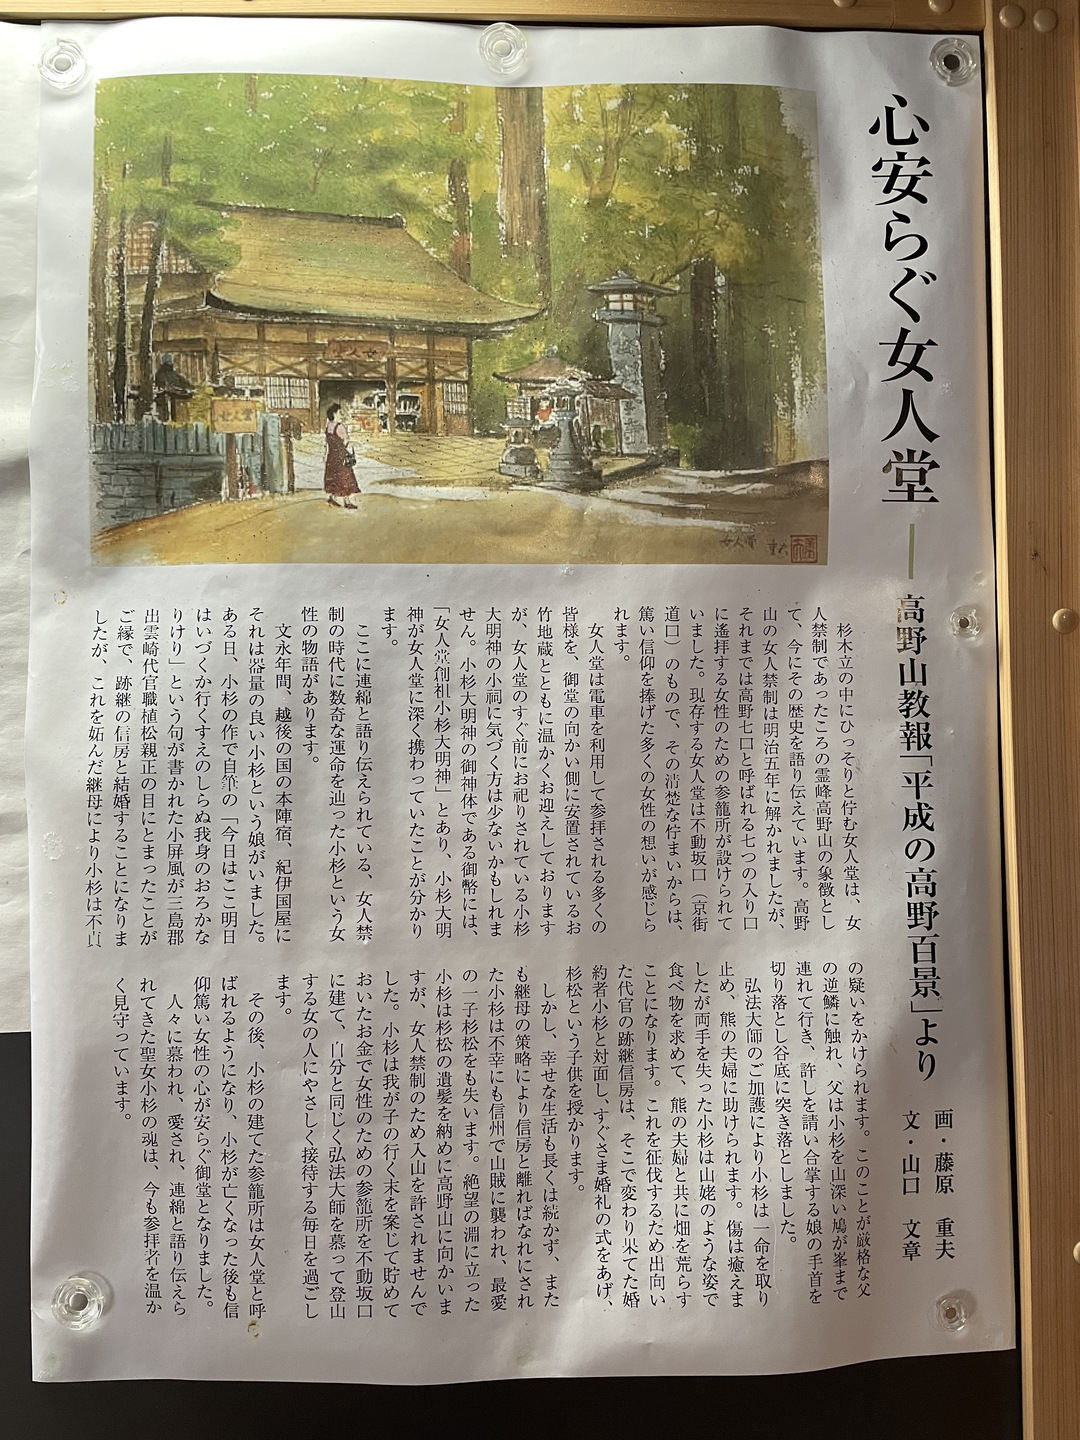 心安らぐ女人堂 ― 高野山教報「平成の高野百景」より
画・藤原 重夫
文・山口 文章
女人堂
女人堂 重夫
杉木立の中にひっそりと佇む女人堂は、女
人禁制であったころの霊峰高野山の象徴とし
て、今にその歴史を語り伝えています。高野
山の女人禁制は明治五年に解かれましたが、
それまでは高野七口と呼ばれる七つの入り口
に遙拝する女性のための参籠所が設けられて
いました。現存する女人堂は不動坂口（京街
道口）のもので、その清楚な佇まいからは、
篤い信仰を捧げた多くの女性の想いが感じら
れます。
女人堂は電車を利用して参拝される多くの
皆様を、御堂の向かい側に安置されているお
竹地蔵とともに温かくお迎えしております
が、女人堂のすぐ前にお祀りされている小杉
大明神の小祠に気づく方は少ないかもしれま
せん。小杉大明神の御神体である御幣には、
「女人堂創祖小杉大明神」とあり、小杉大明
神が女人堂に深く携わっていたことが分かり
ます。
ここに連綿と語り伝えられている、女人禁
制の時代に数奇な運命を辿った小杉という女
性の物語があります。
文永年間、越後の国の本陣宿、紀伊国屋に
それは器量の良い小杉という娘がいました。
ある日、小杉の作で自筆の「今日はここ明日
はいづくか行くすえのしらぬ我身のおろかな
りけり」という句が書かれた小屏風が三島郡
出雲崎代官職植松親正の目にとまったことが
ご縁で、跡継の信房と結婚することになりま
したが、これを妬んだ継母により小杉は不貞
の疑いをかけられます。このことが厳格な父
の逆鱗に触れ、父は小杉を山深い鳩が峯まで
連れて行き、許しを請い合掌する娘の手首を
切り落とし谷底に突き落としました。
弘法大師のご加護により小杉は一命を取り
止め、熊の夫婦に助けられます。傷は癒えま
したが両手を失った小杉は山姥のような姿で
食べ物を求めて、熊の夫婦と共に畑を荒らす
ことになります。これを征伐するため出向い
た代官の跡継信房は、そこで変わり果てた婚
約者小杉と対面し、すぐさま婚礼の式をあげ、
杉松という子供を授かります。
しかし、幸せな生活も長くは続かず、また
も継母の策略により信房と離ればなれにされ
た小杉は不幸にも信州で山賊に襲われ、最愛
の一子杉松をも失います。絶望の淵に立った
小杉は杉松の遺髪を納めに高野山に向かいま
すが、女人禁制のため入山を許されませんで
した。小杉は我が子の行く末を案じて貯めて
おいたお金で女性のための参籠所を不動坂口
に建て、自分と同じく弘法大師を慕って登山
する女の人にやさしく接待する毎日を過ごし
ます。
その後、小杉の建てた参籠所は女人堂と呼
ばれるようになり、小杉が亡くなった後も信
仰篤い女性の心が安らぐ御堂となりました。
人々に慕われ、愛され、連綿と語り伝えら
れてきた聖女小杉の魂は、今も参拝者を温か
く見守っています。